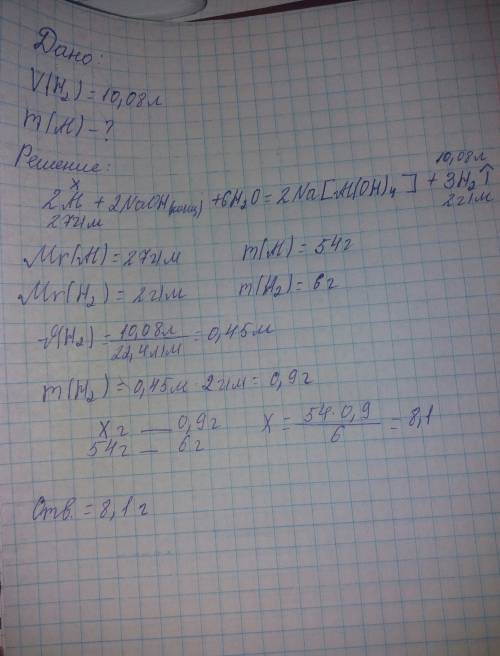 Дано:
V(H₂) = 10,08 л
m(Al) - ?
Решение:
x 10,08 л
2Al + 2NaOH(конц) + 6H₂O = 2Na[Al(OH)₄] + 3H₂↑
27г/м 2г/м
Mr(Al) = 27г/м m(Al) = 54г
Mr(H₂) = 2г/м m(H₂) = 6г
ϑ(H₂) = 10,08л / 22,4л/м = 0,45м
m(H₂) = 0,45м · 2г/м = 0,9г
Xг — 0,9г X = 54·0,9 / 6 = 8,1
54г — 6г
Отв. = 8,1 г